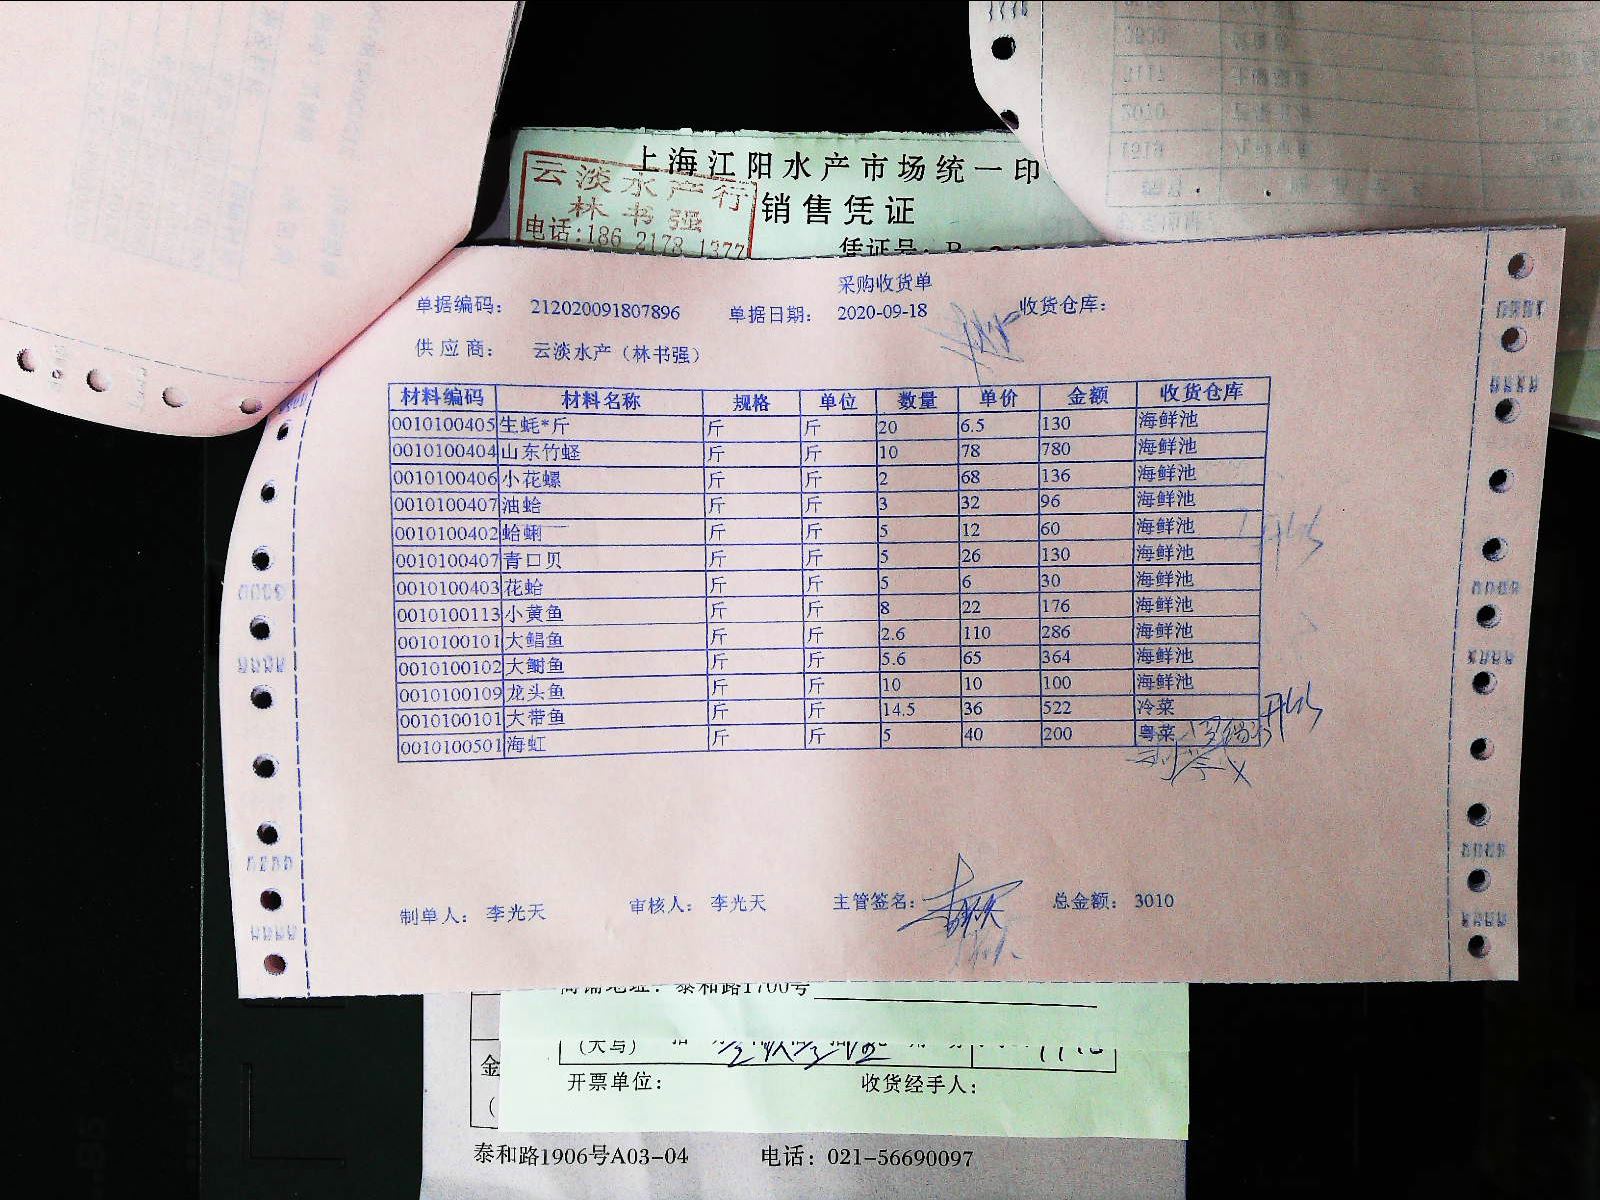 上海江阳水产市场统一印
云淡水产行
林书强
电话:186 2178 1377
销售凭证
凭证号:
采购收货单
单据编码: 212020091807896 单据日期: 2020-09-18 收货仓库:
供应商: 云淡水产（林书强）
材料编码 材料名称 规格 单位 数量 单价 金额 收货仓库
0010100405 生蚝*斤 斤 斤 20 6.5 130 海鲜池
0010100404 山东竹蛏 斤 斤 10 78 780 海鲜池
0010100406 小花螺 斤 斤 2 68 136 海鲜池
0010100407 油蛤 斤 斤 3 32 96 海鲜池
0010100402 蛤蜊 斤 斤 5 12 60 海鲜池
0010100407 青口贝 斤 斤 5 26 130 海鲜池
0010100403 花蛤 斤 斤 5 6 30 海鲜池
0010100113 小黄鱼 斤 斤 8 22 176 海鲜池
0010100101 大鲳鱼 斤 斤 2.6 110 286 海鲜池
0010100102 大鮒鱼 斤 斤 5.6 65 364 海鲜池
0010100109 龙头鱼 斤 斤 10 10 100 海鲜池
0010100101 大带鱼 斤 斤 14.5 36 522 冷菜
0010100501 海虹 斤 斤 5 40 200 粤菜
制单人: 李光天 审核人: 李光天 主管签名: 总金额: 3010
商铺地址: 泰和路1700号
(大写)
开票单位: 收货经手人:
金
泰和路1906号A03-04 电话: 021-56690097